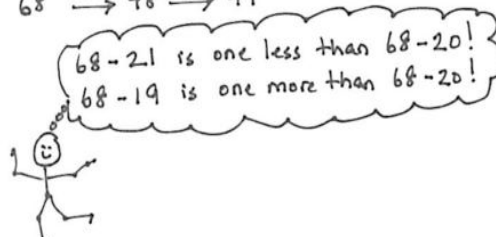 68 → 48 →
68-21 is one less than 68-20!
68-19 is one more than 68-20!